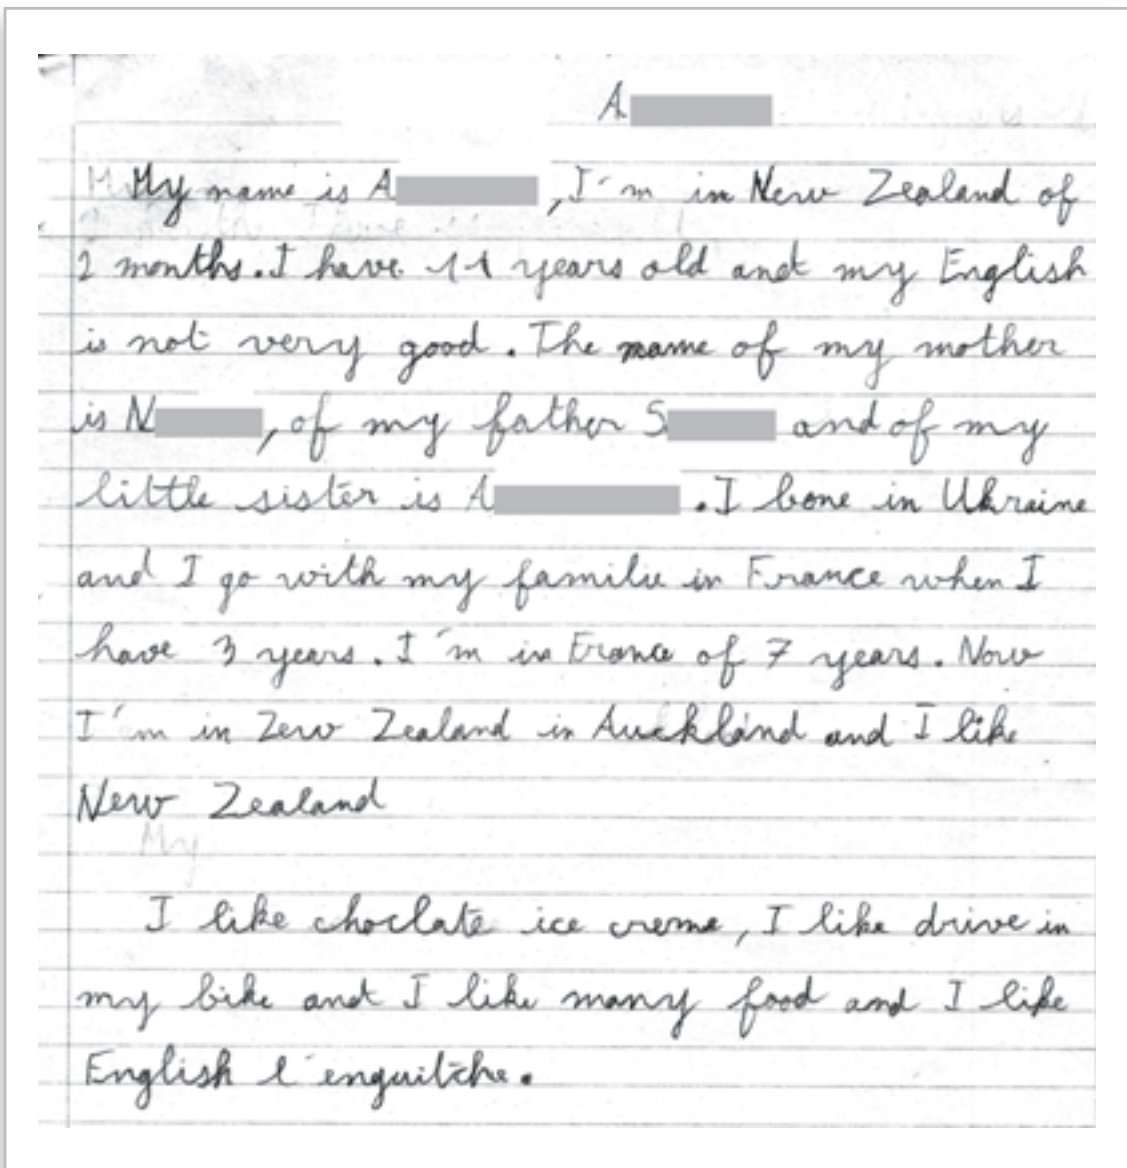 A
My name is A , I'm in New Zealand of
2 months. I have 11 years old and my English
is not very good. The name of my mother
is N , of my father S and of my
little sister is A . I bone in Ukraine
and I go with my familie in France when I
have 3 years. I'm in France of 7 years. Now
I'm in Zew Zealand in Auckland and I like
New Zealand
My
I like choclate ice creme, I like drive in
my bike and I like many food and I like
English l'enguitche.